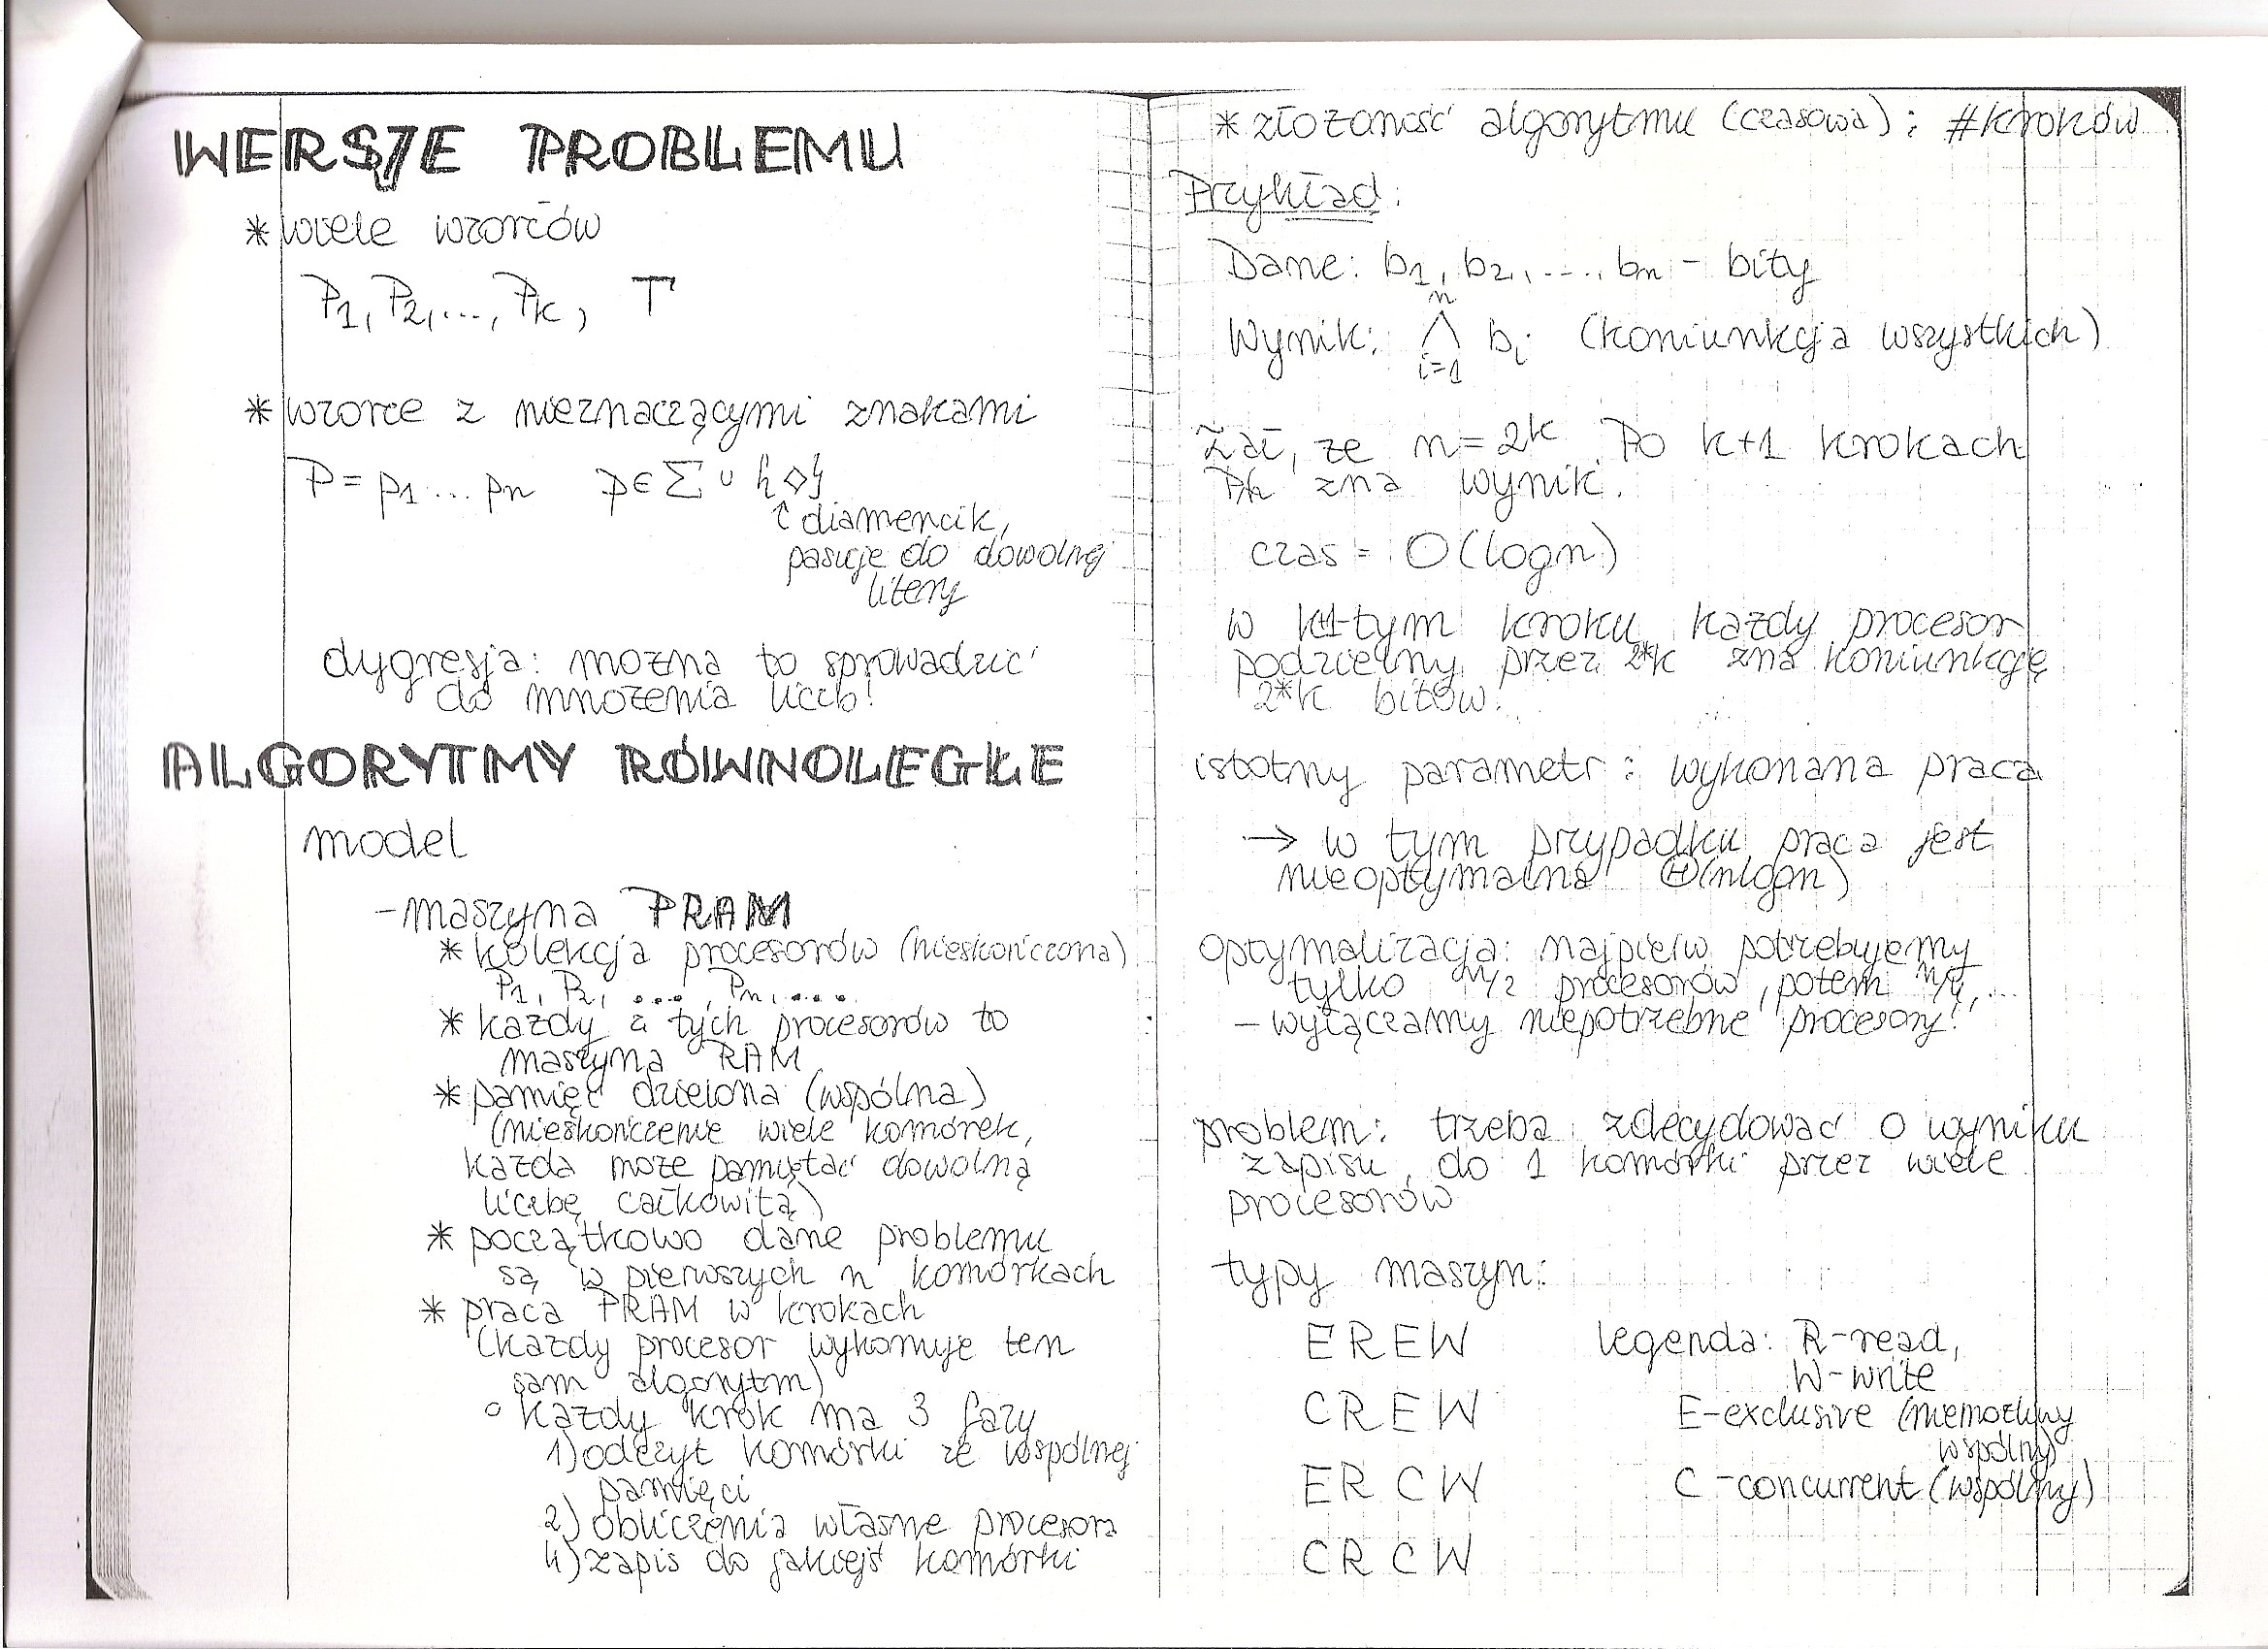 WERSJE PROBLEMU
* wiele wzorców
P1, P2, ..., Pk, T
* wzorce z nieznaczącymi znakami
P = p1 ... pn p ∈ Σ ∪ {◇}
↑ diamencik,
pasuje do dowolnej
litery
dygresja: można to sprowadzić
do mnożenia liczb!
ALGORYTMY RÓWNOLEGŁE
model
- maszyna PRAM
* kolekcja procesorów (nieskończona)
P1, P2, ..., Pn, ....
* każdy z tych procesorów to
maszyna RAM
* pamięć dzielona (wspólna)
(nieskończenie wiele komórek,
każda może pamiętać dowolną
liczbę całkowitą)
* początkowo dane problemu
są w pierwszych n komórkach
* praca PRAM w krokach
(każdy procesor wykonuje ten
sam algorytm)
○ każdy krok ma 3 fazy
1) odczyt komórki ze wspólnej
pamięci
2) obliczenia własne procesora
4) zapis do jakiejś komórki
* złożoność algorytmu (czasowa): #kroków
Przykład:
Dane: b1, b2, ...., bn - bity
Wynik: n ⋀ i=1 bi (koniunkcja wszystkich)
Zał, że n = 2^k. Po k+1 krokach
zna wynik.
czas = O(logn)
w k+1-tym kroku każdy procesor
podzielny przez 2*k zna koniunkcję
2*k bitów.
istotny parametr: wykonana praca
→ w tym przypadku praca jest
nieoptymalna Θ(nlogn)
optymalizacja: najpierw potrzebujemy
tylko n/2 procesorów, potem n/4, ...
- wyłączamy niepotrzebne procesory!
problem: trzeba zdecydować o wyniku
zapisu do 1 komórki przez wiele
procesorów
typy maszyn:
EREW legenda: R-read,
W-write
CREW E-exclusive (niemożliwy
wspólny)
ERCW C-concurrent (wspólny)
CRCW